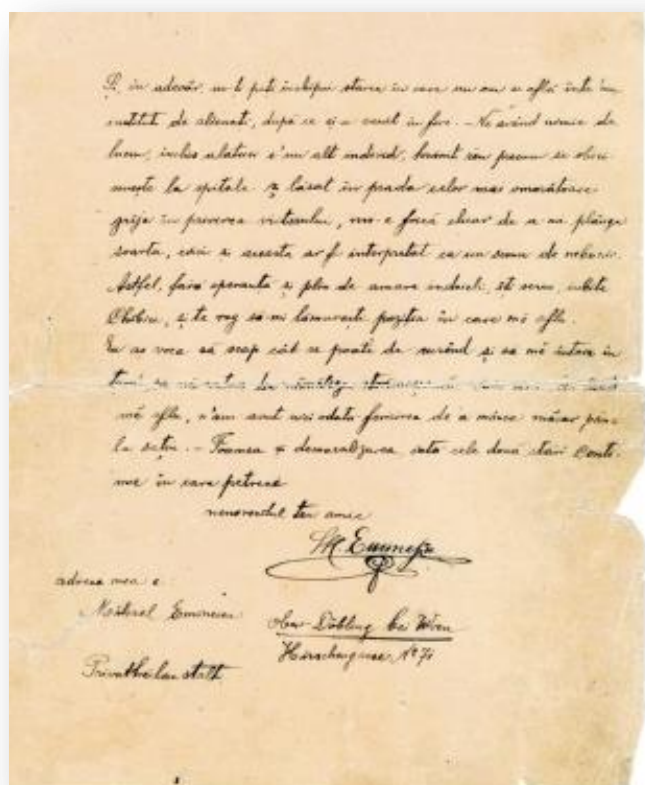 Și, în adevăr, nu-ți poți închipui starea în care un om se află într'un
institut de alienați, după ce și-a venit în fire. – Ne având nimic de
lucru, închis alături c'un alt individ, hrănit rău precum se obici
nuește la spitale și lăsat în prada celor mai omorâtoare
griji în privirea viitorului, mi-e frică chiar de a-mi plânge
soarta, căci și aceasta ar fi interpretat ca un semn de nebunie.
Astfel, fără speranță și plin de amare îndoieli, îți scriu, iubite
Chibiciu, și te rog să-mi lămurești poziția în care mă aflu.
Eu aș voi să scap cât se poate de curând și să mă întorc în
țară, să mă satur de mămăligă strămoșească, căci aici, de când
mă aflu, n'am avut niciodată fericirea de a mânca măcar până
la sațiu. – Foamea și demoralizarea, iată cele două stări conti-
nue în care petrece
nenorocitul tău amic
M Eminescu
adresa mea e
Michael Eminescu
Ober-Döbling bei Wien
Hirschengasse No 71
Privatheilanstalt